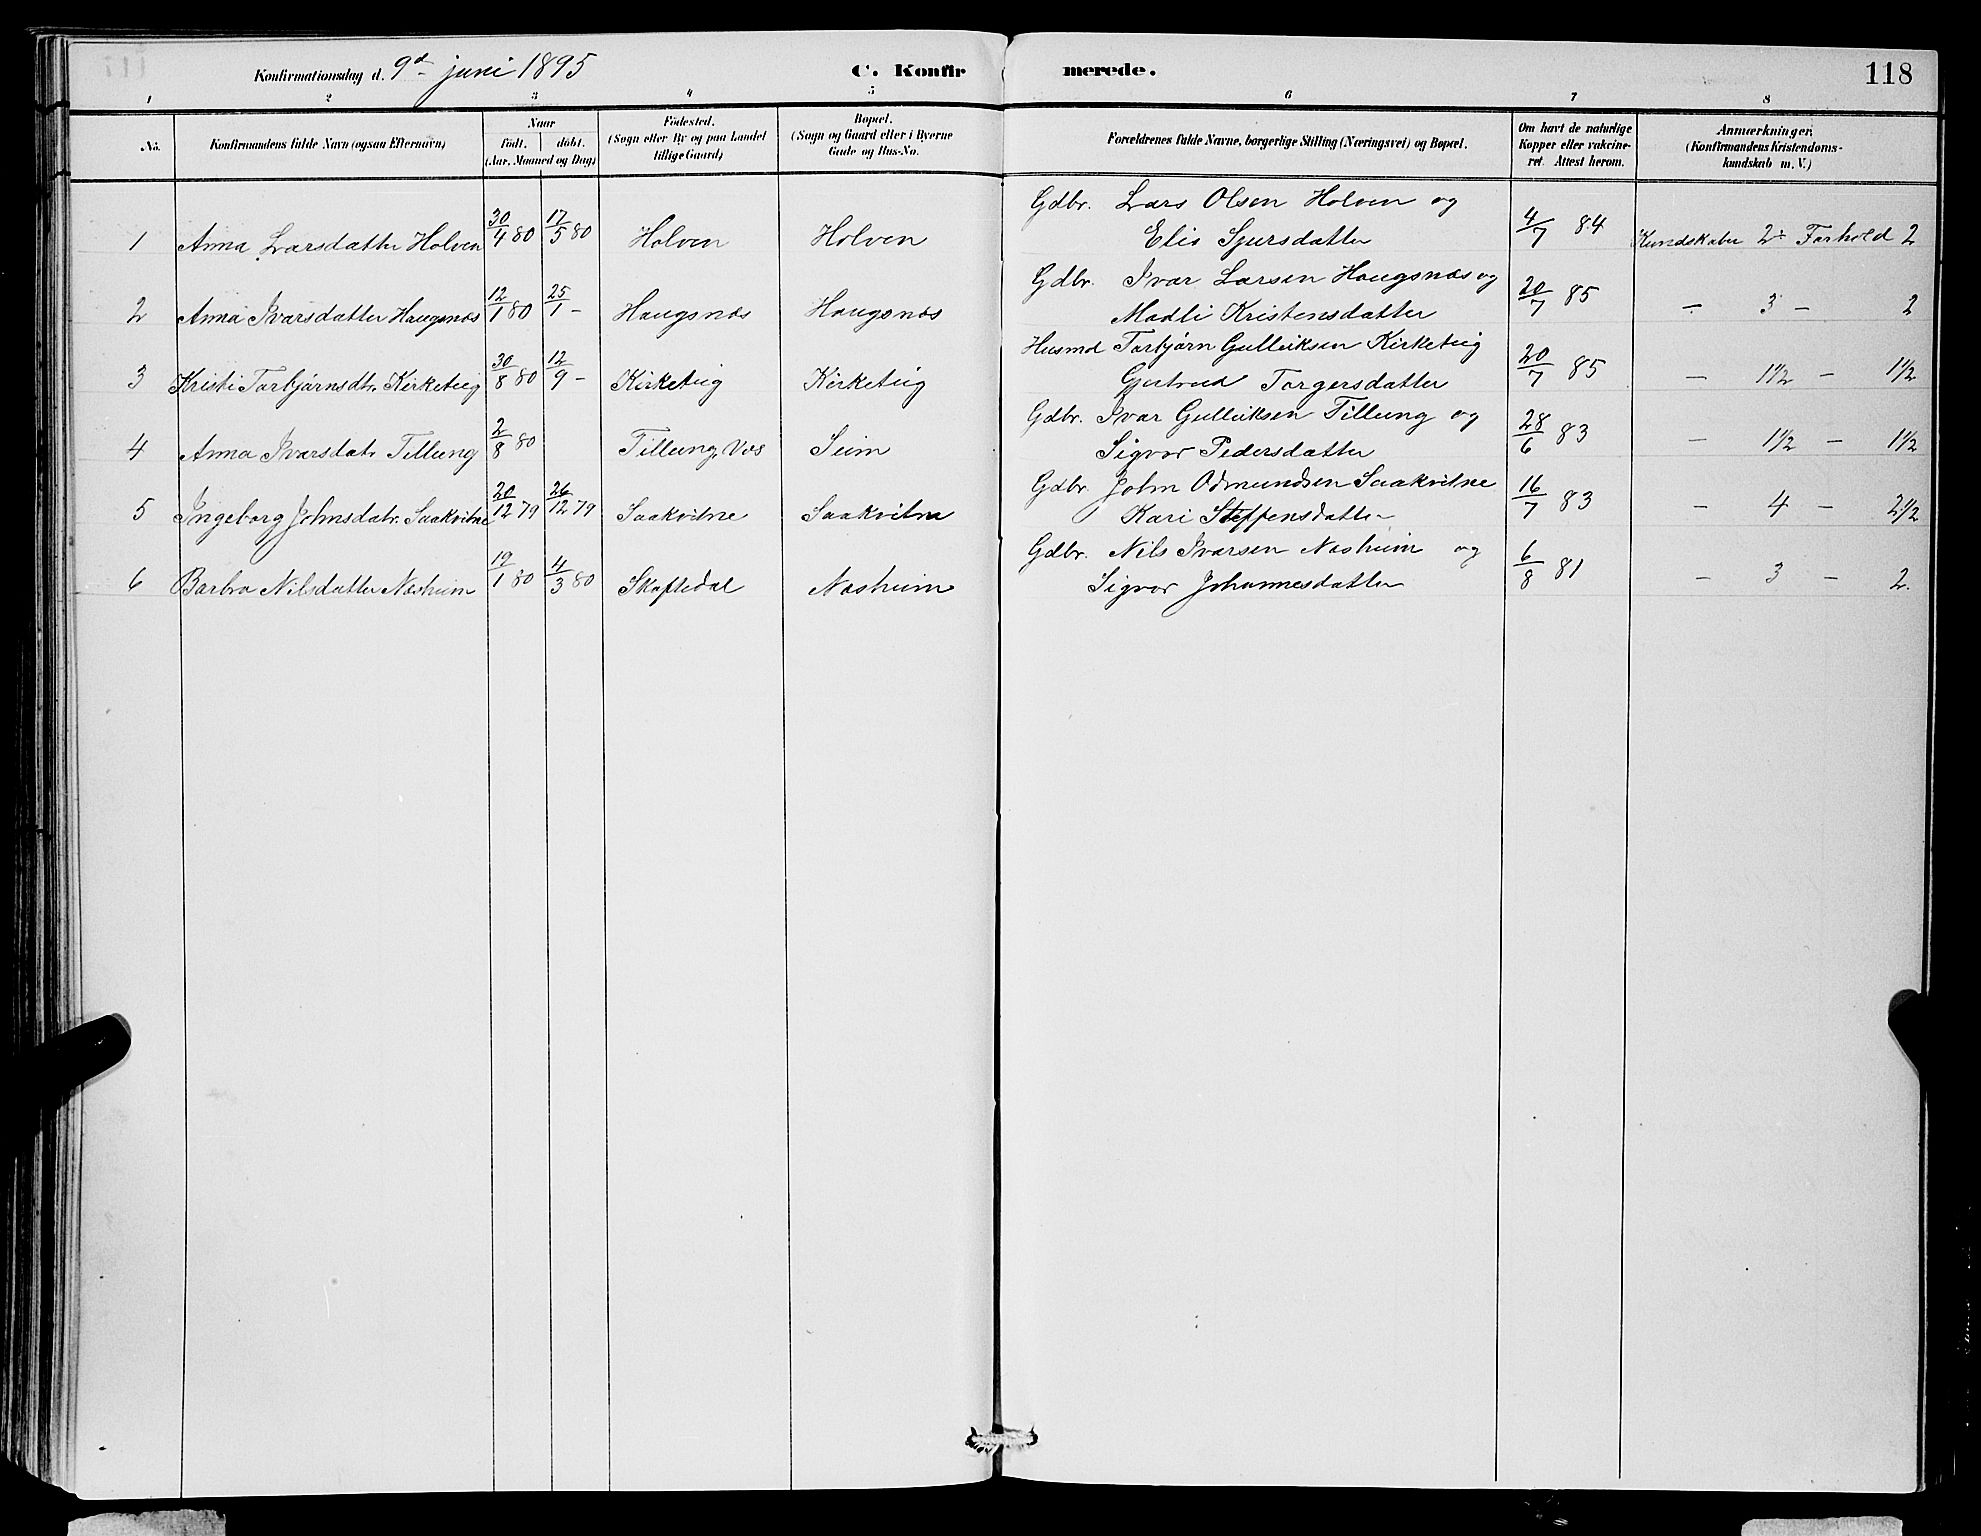 Konfirmationsdag d. 9de juni 1895 C. Konfirmerede. 118
1 2 3 4 5 6 7 8
No. Konfirmandens fulde Navn (ogsaa Efternavn) Naar födt. döbt. (Aar, Maaned og Dag) Födested. (Sogn eller By og paa Landet tillige Gaard) Bopæl. (Sogn og Gaard eller i Byerne Gade og Hus-No. Forældrenes fulde Navne, borgerlige Stilling (Næringsvei) og Bopæl. Om havt de naturlige Kopper eller vakcineret. Attest herom. Anmærkninger. (Konfirmandens Kristendomskundskab m. V.)
1 Anna Larsdatter Holven 30/4 80 17/5 80 Holven Holven Gdbr. Lars Olsen Holven og
Elis Sjursdatter 4/7 84 Kundskaber 2÷ Forhold 2
2 Anna Ivarsdatter Haugsnæs 12/1 80 25/1 - Haugsnæs Haugsnæs Gdbr. Ivar Larsen Haugsnæs og
Madli Kristensdatter 20/7 85 - 3 - 2
3 Kristi Torbjørnsdtr. Kirketeig 30/8 80 12/9 - Kirketeig Kirketeig Husmd Torbjørn Gulleiksen Kirketeig
Gjertrud Torgersdatter 20/7 85 - 1 1/2 - 1 1/2
4 Anna Ivarsdatr Tillung 2/8 80 Tillung, Vos Seim Gdbr. Ivar Gulleiksen Tillung og
Sigvor Pedersdatter 28/6 83 - 1 1/2 - 1 1/2
5 Ingeborg Johnsdatr. Saakvitne 20/12 79 26/12 79 Saakvitne Saakvitne Gdbr. John Odmundsen Saakvitne
Kari Steffensdatter 16/7 83 - 4 - 2 1/2
6 Barbro Nilsdatter Næsheim 19/1 80 4/3 80 Skaftedal Næsheim Gdbr. Nils Ivarsen Næsheim og
Sigvor Johannesdatter 6/8 81 - 3 - 2.